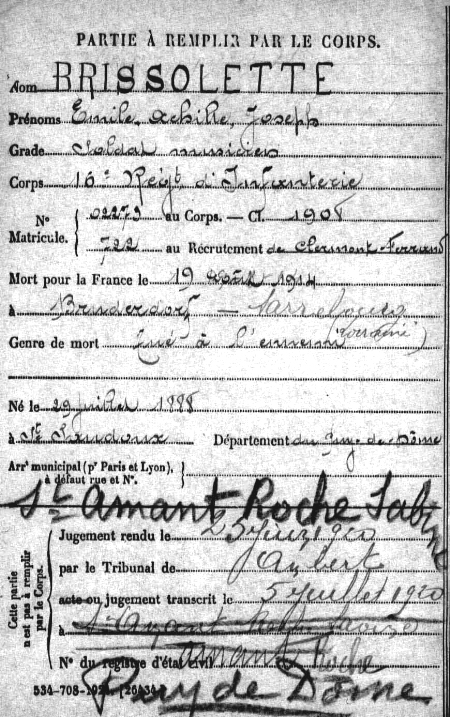 PARTIE À REMPLIR PAR LE CORPS.
Nom BRISSOLETTE
Prénoms Emile, Achille, Joseph
Grade Soldat musicien
Corps 16e Régt d'Infanterie
N° Matricule. 02273 au Corps. — Cl. 1908
722 au Recrutement de Clermont-Ferrand
Mort pour la France le 19 août 1914
à Bruderdorf —
(Lorraine)
Genre de mort Tué à l'ennemi
Né le 29 juillet 1888
à St Sandoux Département du Puy de Dôme
Arrt municipal (pr Paris et Lyon), à défaut rue et N°.
St Amant Roche Savine
Cette partie n'est pas à remplir par le Corps.
Jugement rendu le 25 juin 1920
par le Tribunal de Ambert
acte ou jugement transcrit le 5 juillet 1920
à St Amant Roche Savine
N° du registre d'état civil Amant Roche
Puy de Dôme
534-708-1921. [26434]